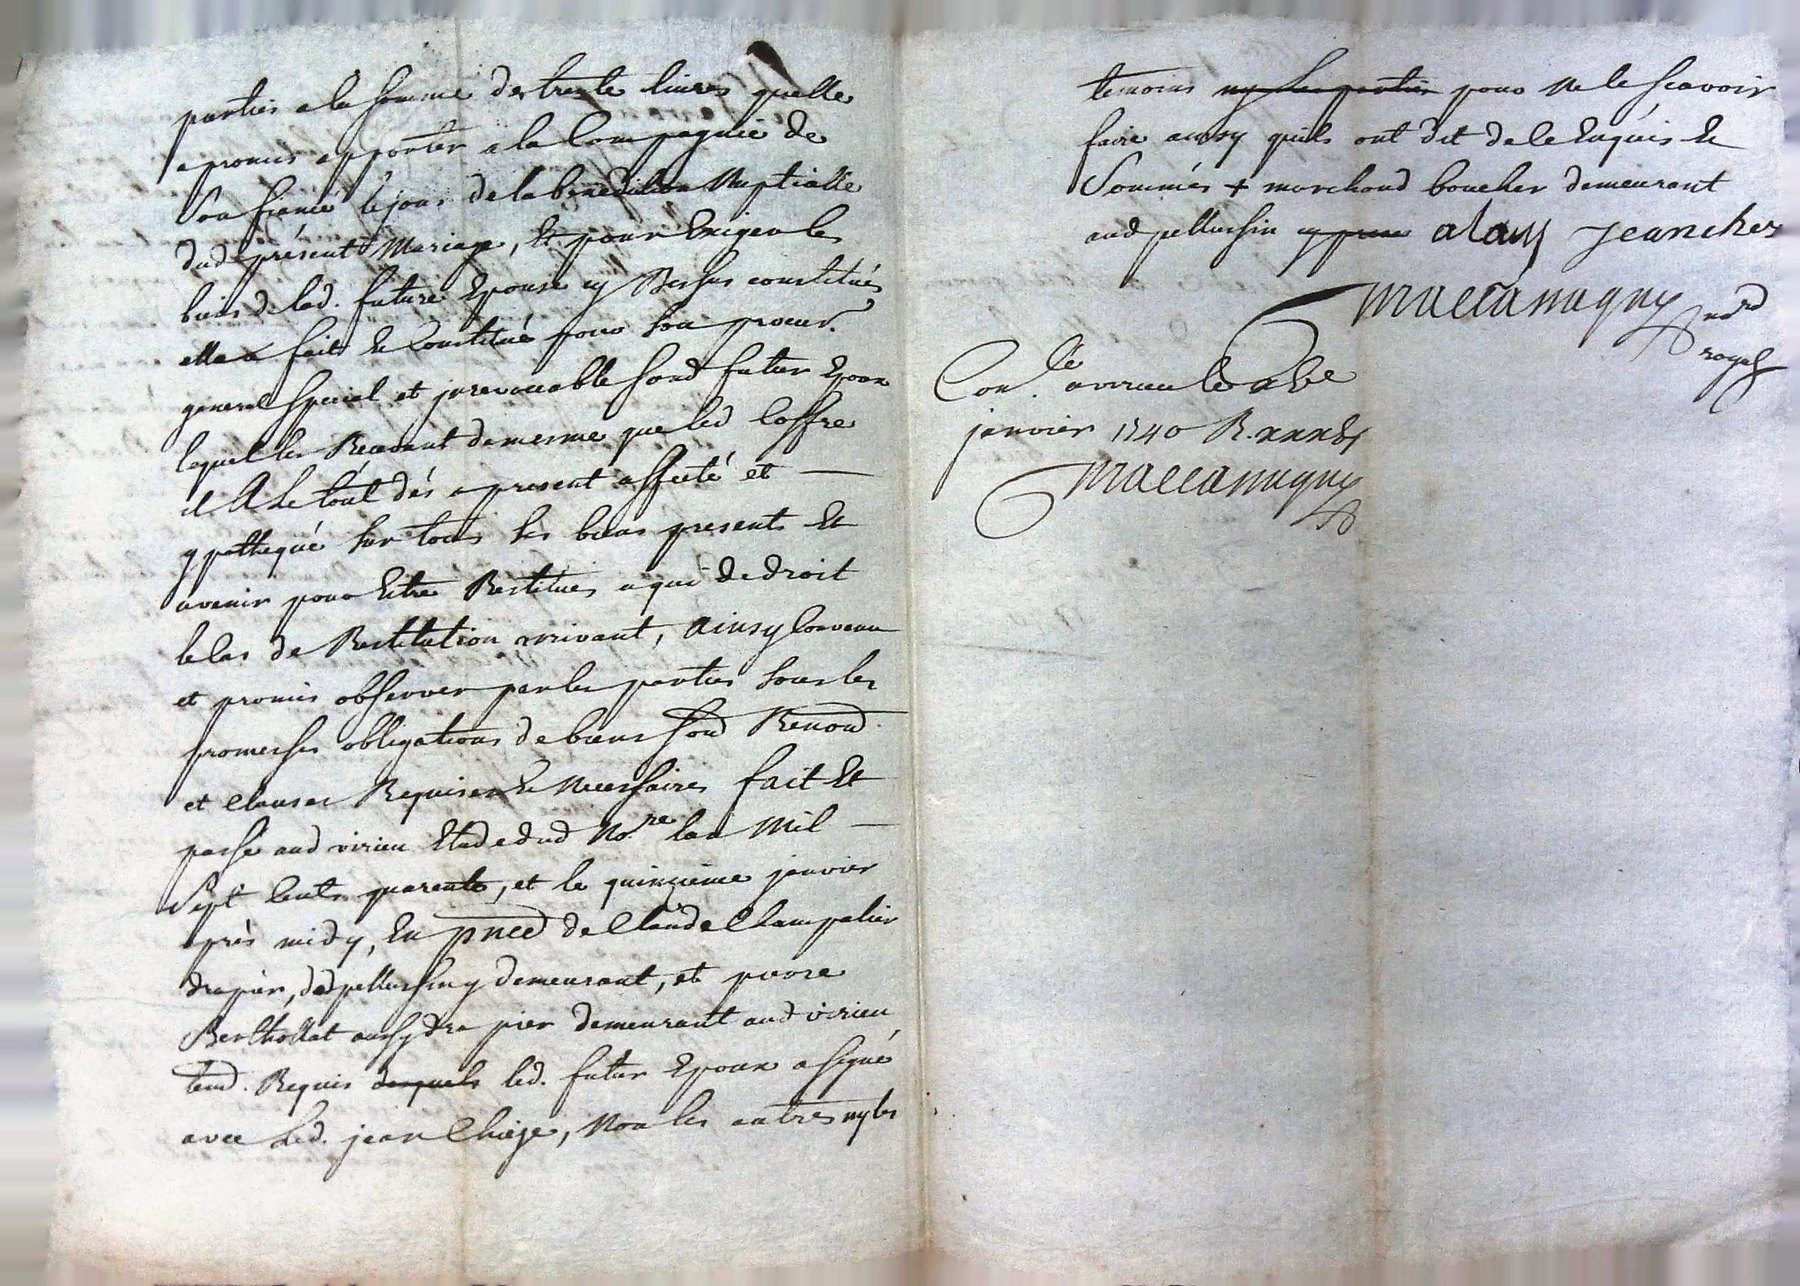 parties a la somme de trente livres quelle
a promis apporter a la Compagnie de
son fiancé le jour de la benediction Nuptialle
dud présent Mariage, Et pour Exiger les
biens de lad. future Epouse cy Dessus constitués
elle a fait et Constitué pour son procur.
general special et jrrevocable sond futur Epoux
lequel les Recevant de mesme que led Coffre
il A le tout dés a present affecté et
ypothequé sur tous ses biens presents Et
avenir pour Estre Restitués a qui de droit
le Cas de Restitution arrivant, Ainsy Convenu
et promis observer par les parties sous les
promesses obligations de biens Renond
et Clauses Requises et Necessaires fait Et
passé aud virieu Etude dud No.re lan Mil
Sept Cents quarente, et le quinzieme janvier
après midy, En pnce de Claude Champalier
drapier, dud pellussin y demeurant, et pierre
Berthollat aussy drapier demeurant aud virieu
temd. Requis desquels led. futur Epoux a signé
avec Led. jean Chieze, Non les autres ny les
temoins ny les parties pour Ne le scavoir
faire ainsy quils ont dit de ce Enquis Et
Sommés + marchand boucher demeurant
aud pellussin jean chez
royal
Con.lé a virieu le
janvier 1740 R.